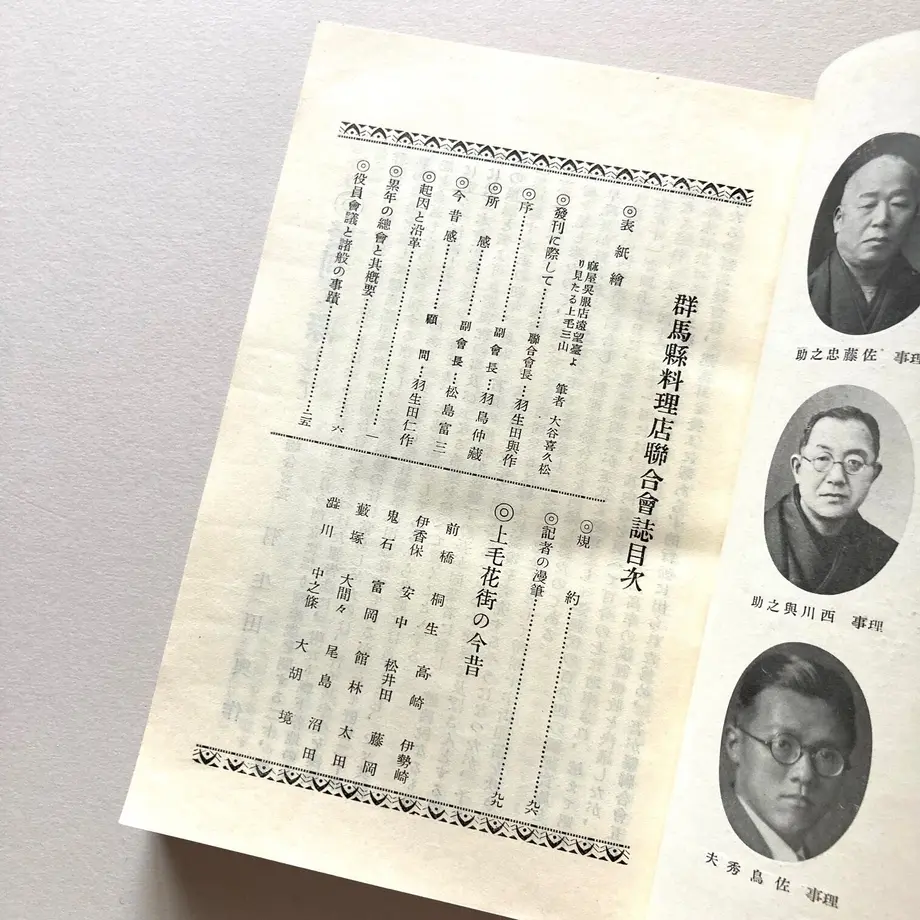 群馬縣料理店聯合會誌目次
◎表紙繪
麻屋呉服店遠望臺よ
り見たる上毛三山
筆者 大谷喜久松
◎發刊に際して…………聯合會長…羽生田與作
◎序…………副會長…羽鳥仲藏
◎所感…………副會長…松島富三
◎今昔感…………顧問…羽生田仁作
◎起因と沿革…………一
◎累年の總會と其概要…………六
◎役員會議と諸般の事蹟…………二五
◎規約…………九六
◎記者の漫筆…………九九
◎上毛花街の今昔
前橋 桐生 高崎 伊勢崎
伊香保 安中 松井田 藤岡
鬼石 富岡 館林 太田
藪塚 大間々 尾島 沼田
澁川 中之條 大胡 境
理事 佐藤忠之助
理事 西川與之助
理事 佐鳥秀夫